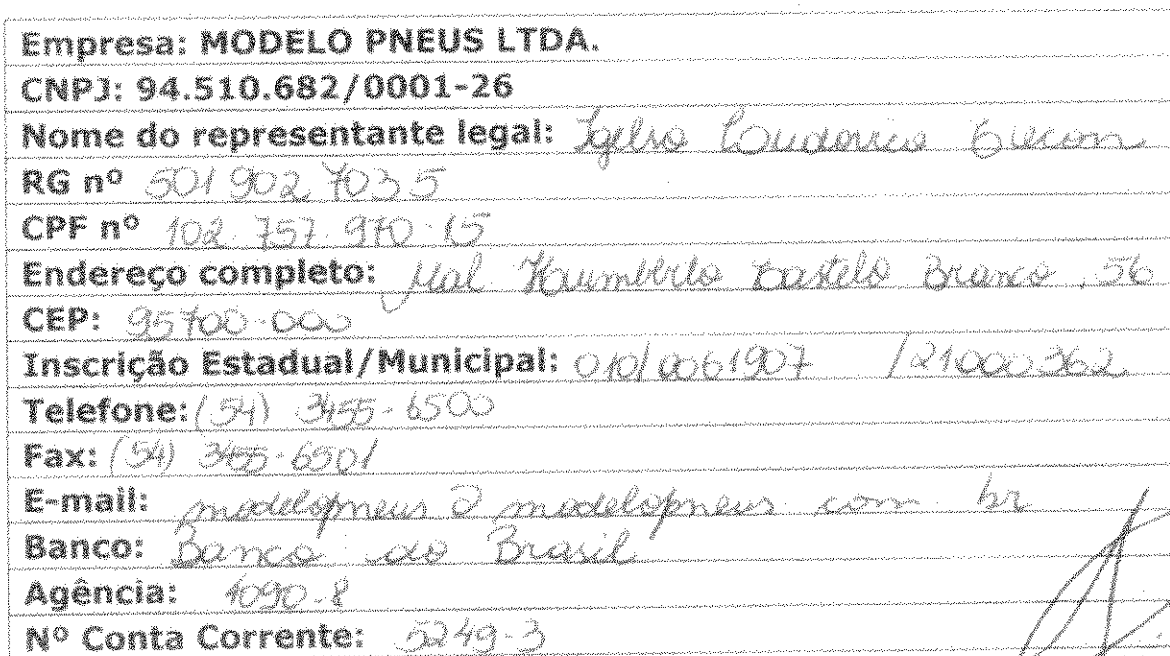 Empresa: MODELO PNEUS LTDA.
CNPJ: 94.510.682/0001-26
Nome do representante legal:
RG nº 501 902 7035
CPF nº 102.757.970-15
Endereço completo: Mal. Humberto Castelo Branco, 56
CEP: 95700-000
Inscrição Estadual/Municipal: 010/0061907 /21000362
Telefone: (54) 3455-6500
Fax: (54) 3455-6501
E-mail: modelopneus @ modelopneus com br
Banco: Banco do Brasil
Agência: 1090-8
Nº Conta Corrente: 5249-3